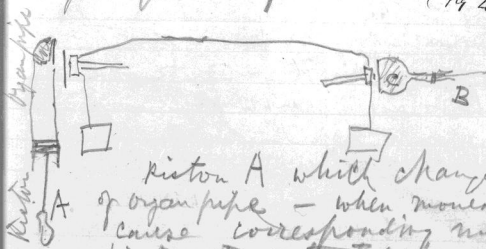 organ pipe
B
Piston A
Piston A which chang
of organ pipe – when move
cause corresponding m